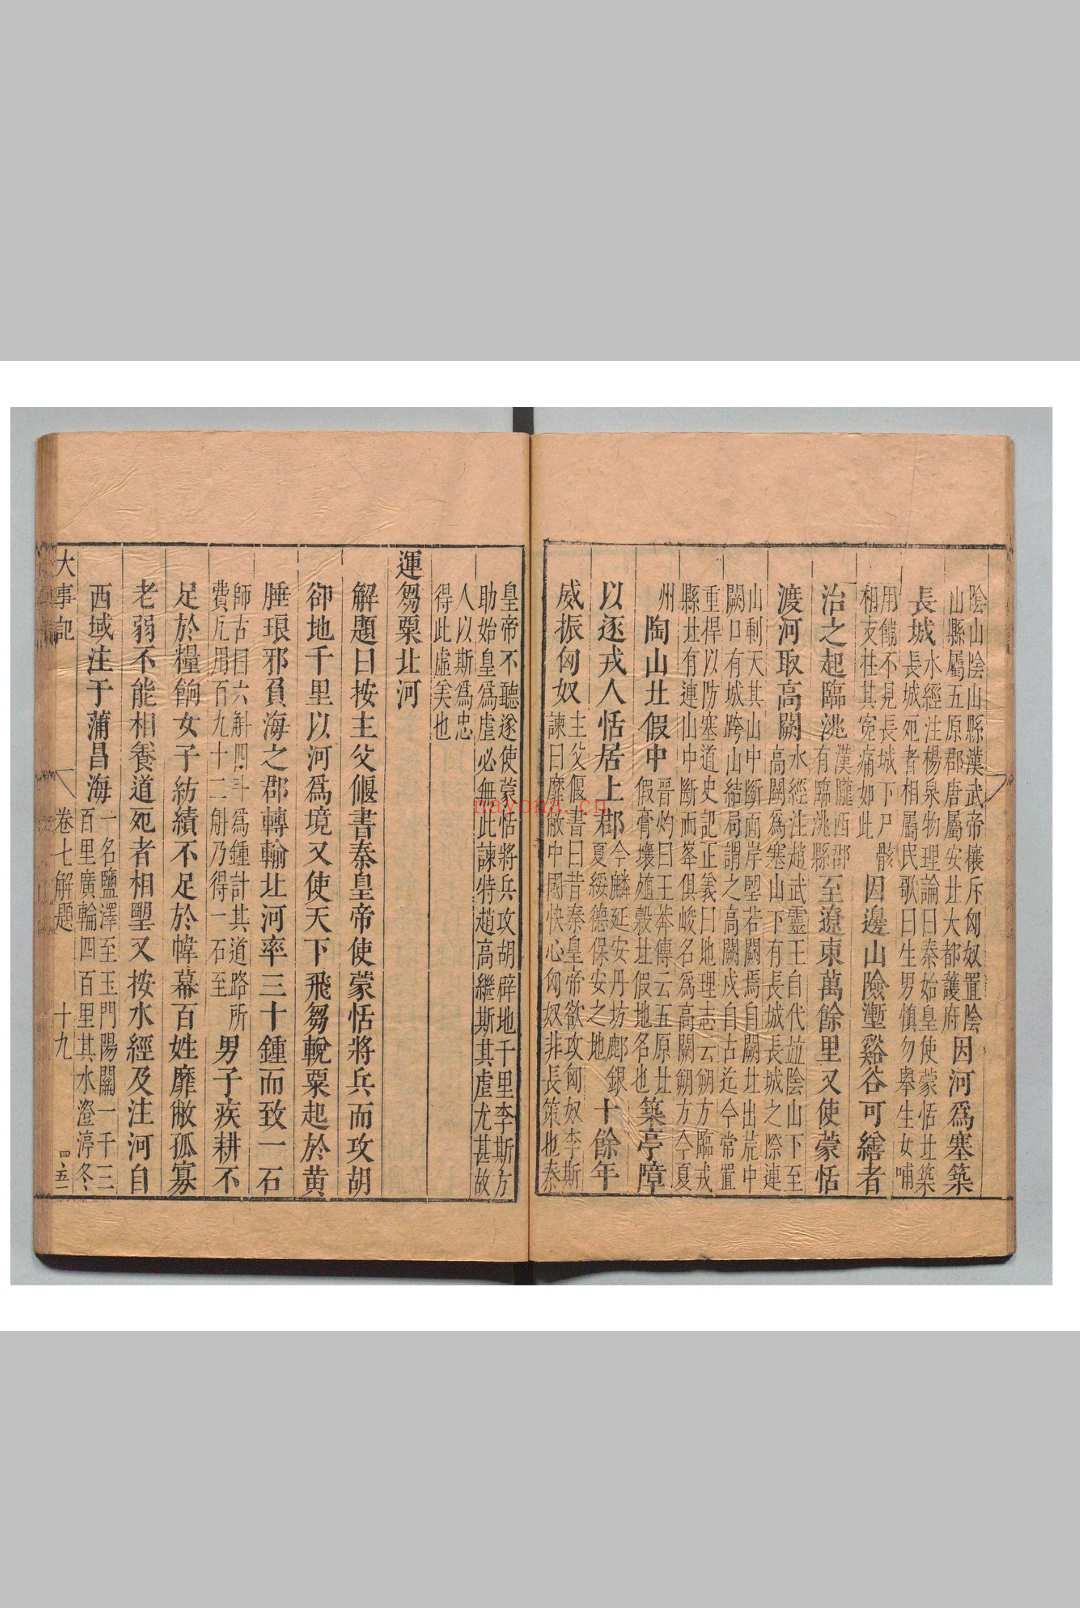 陰山陰山縣漢武帝攘斥匈奴置陰
山縣屬五原郡唐屬安北大都護府
因河爲塞築
長城
水經注楊泉物理論曰秦始皇使蒙恬北築
長城死者相屬民歌曰生男愼勿舉生女哺
用餔不見長城下尸骸
相支柱其寃痛如此
因邊山險壍谿谷可繕者
治之起臨洮
漢隴西郡
有臨洮縣
至遼東萬餘里又使蒙恬
渡河取高闕
水經注趙武靈王自代並陰山下至
高闕爲塞山下有長城長城之際連
山刺天其山中斷兩岸雙
闕焉自闕北出荒中
闕口有城跨山結局謂之高闕戍自古迄今常置
重捍以防塞道史記正義曰地理志云朔方臨戎
縣北有連山中斷而峯俱峻名爲高闕朔方今夏
州
陶山北假中
晉灼曰王莽傳云五原北
假膏壤殖穀北假地名也
築亭障
以逐戎人恬居上郡
今麟延安丹坊鄜銀
夏綏德保安之地
十餘年
威振匈奴
主父偃書曰昔秦皇帝欲攻匈奴李斯
諫曰靡敝中國快心匈奴非長策也秦
皇帝不聽遂使蒙恬將兵攻胡辟地千里李斯方
助始皇爲虐必無此諫特趙高繼斯其虐尤甚故
人以斯爲忠
得此虛美也
運芻粟北河
解題曰按主父偃書秦皇帝使蒙恬將兵而攻胡
卻地千里以河爲境又使天下飛芻輓粟起於黄
腄琅邪負海之郡轉輸北河率三十鍾而致一石
師古曰六斛四斗爲鍾計其道路所
費凡用百九十二斛乃得一石至
男子疾耕不
足於糧餉女子紡績不足於幃幕百姓靡敝孤寡
老弱不能相養道死者相朢又按水經及注河自
西域注于蒲昌海
一名鹽澤至玉門陽關一千三
百里廣輪四百里其水澄渟冬
大事記
卷七解題
十九